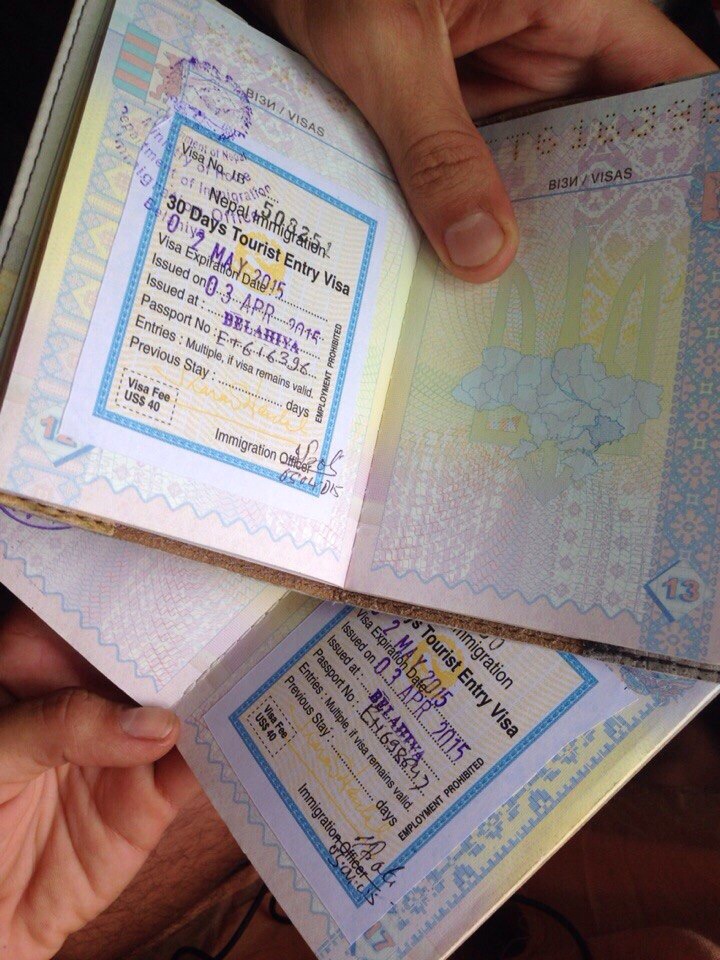 ВІЗИ / VISAS
Visa No. 15
508251
Nepal Immigration
30 Days Tourist Entry Visa
0 2 MAY 2015
Visa Expiration Date :
0 3 APR 2015
Issued on
Issued at : BELAHIYA
Passport No : ET616396
Entries : Multiple, if visa remains valid.
Previous Stay : days
EMPLOYMENT PROHIBITED
Visa Fee
US$ 40
Immigration Officer
ВІЗИ / VISAS
13
Immigration
Tourist Entry Visa
2 MAY 2015
Visa Expiration Date
Issued on 0 3 APR 2015
Issued at : BELAHIYA
Passport No :
Entries : Multiple, if visa remains valid.
Previous Stay : days
EMPLOYMENT PROHIBITED
Visa Fee
US$ 40
Immigration Officer
17